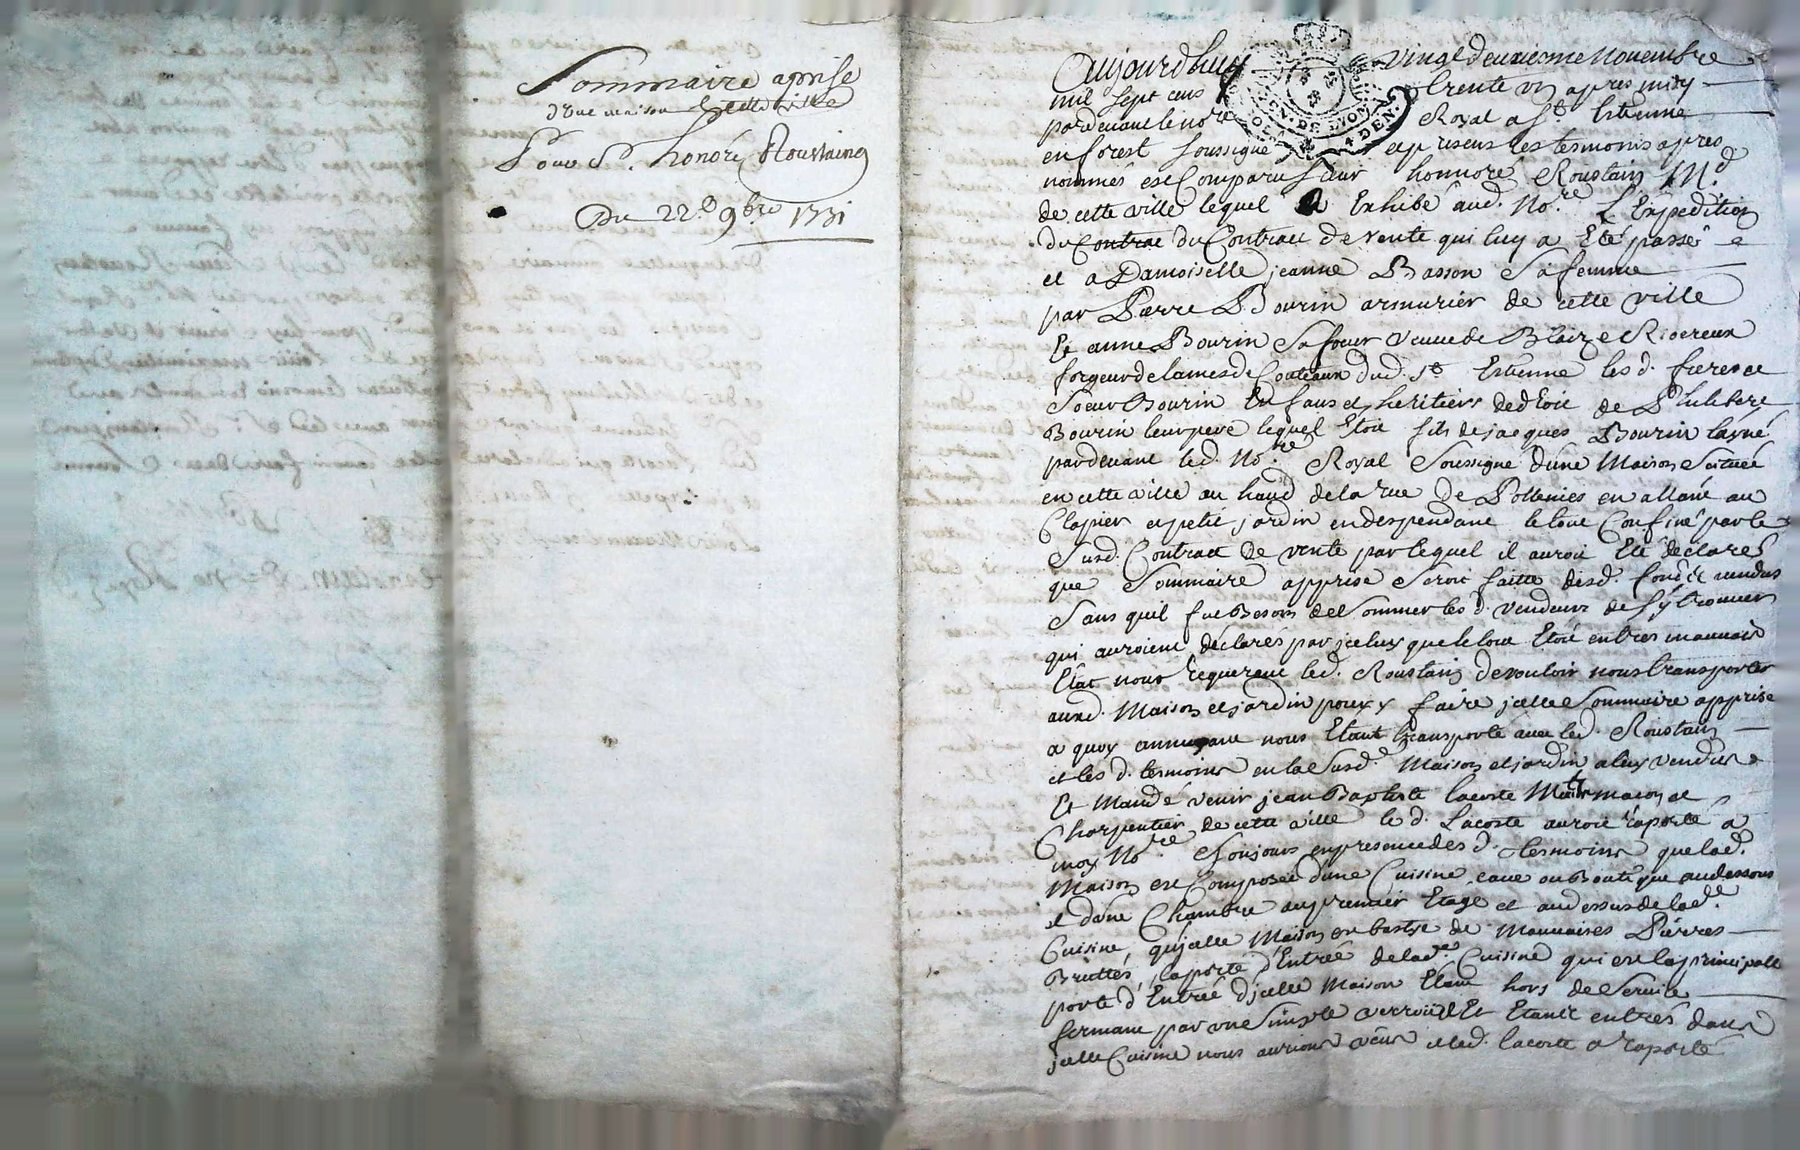 Sommaire aprise
d'une maison de cette ville
Pour Sr. honoré Roustaing
Du 22e 9bre 1731
Aujourdhuy vingt deuxiesme Novembre
mil sept cens trente un apres midy
pardevant le nore Royal a St. Estienne
en forest soussigné et presens les tesmoins apres
nommes est Comparu sieur honnoré Roustain Md
de cette ville lequel a Exhibé aud. Nore L'Expedition
du Contrac du Contract de vente qui luy a Eté passé
et a Damoiselle jeanne Basson sa femme
par Pierre Bourin armurier de cette ville
Et anne Bourin sa soeur veuve de Blaize Riocreux
forgeur de lames de Couteaux dud. St. Estienne les d. frere et
Soeur Bourin Enfans et heritiers de droit de Philibert
Bourin leur pere lequel Etoit fils de jacques Bourin layné
pardevant led. Nore Royal Soussigné d'une Maison Scituée
en cette ville au haud de la rue de Pollenies en allant au
Clapier et petit jardin en despendant le tout Confiné par le
Susd. Contract de vente par lequel il auroit Eté declaré
que Sommaire apprise Seroit faitte desd. fonds vendus
Sans quil fut Besoin de Sommer les d. vendeurs de s'y trouver
qui auroient déclarés par jceluy que le tout Etoit en tres mauvais
Etat nous requerant led. Roustain de vouloir nous transporter
aux d. Maison et jardin pour y faire jcelle Sommaire apprise
a quoy annuyant nous Etant transporté avec led. Roustain
et les d. tesmoins en la Susd. Maison et jardin a luy vendus
Et Mandé venir jean Baptiste lacoste Mtre masson et
Charpentier de cette ville le d. Lacoste auroit raporté a
moy Nore toujours en presence des d. tesmoins que lad.
Maison est Composée d'une Cuisine cave ou Boutique au dessous
et d'une Chambre au premier Etage et au dessus de lade.
Cuisine, qu'jcelle Maison est bastye de mauvaises Pierres
Bruttes, la porte d'Entrée de lade. Cuisine qui est la principalle
porte d'Entrée d'jcelle Maison Etant hors de Service
fermant par une Simple verrouil Et Etants entrés dans
jcelle Cuisine nous aurions veus et led. lacoste a raporté